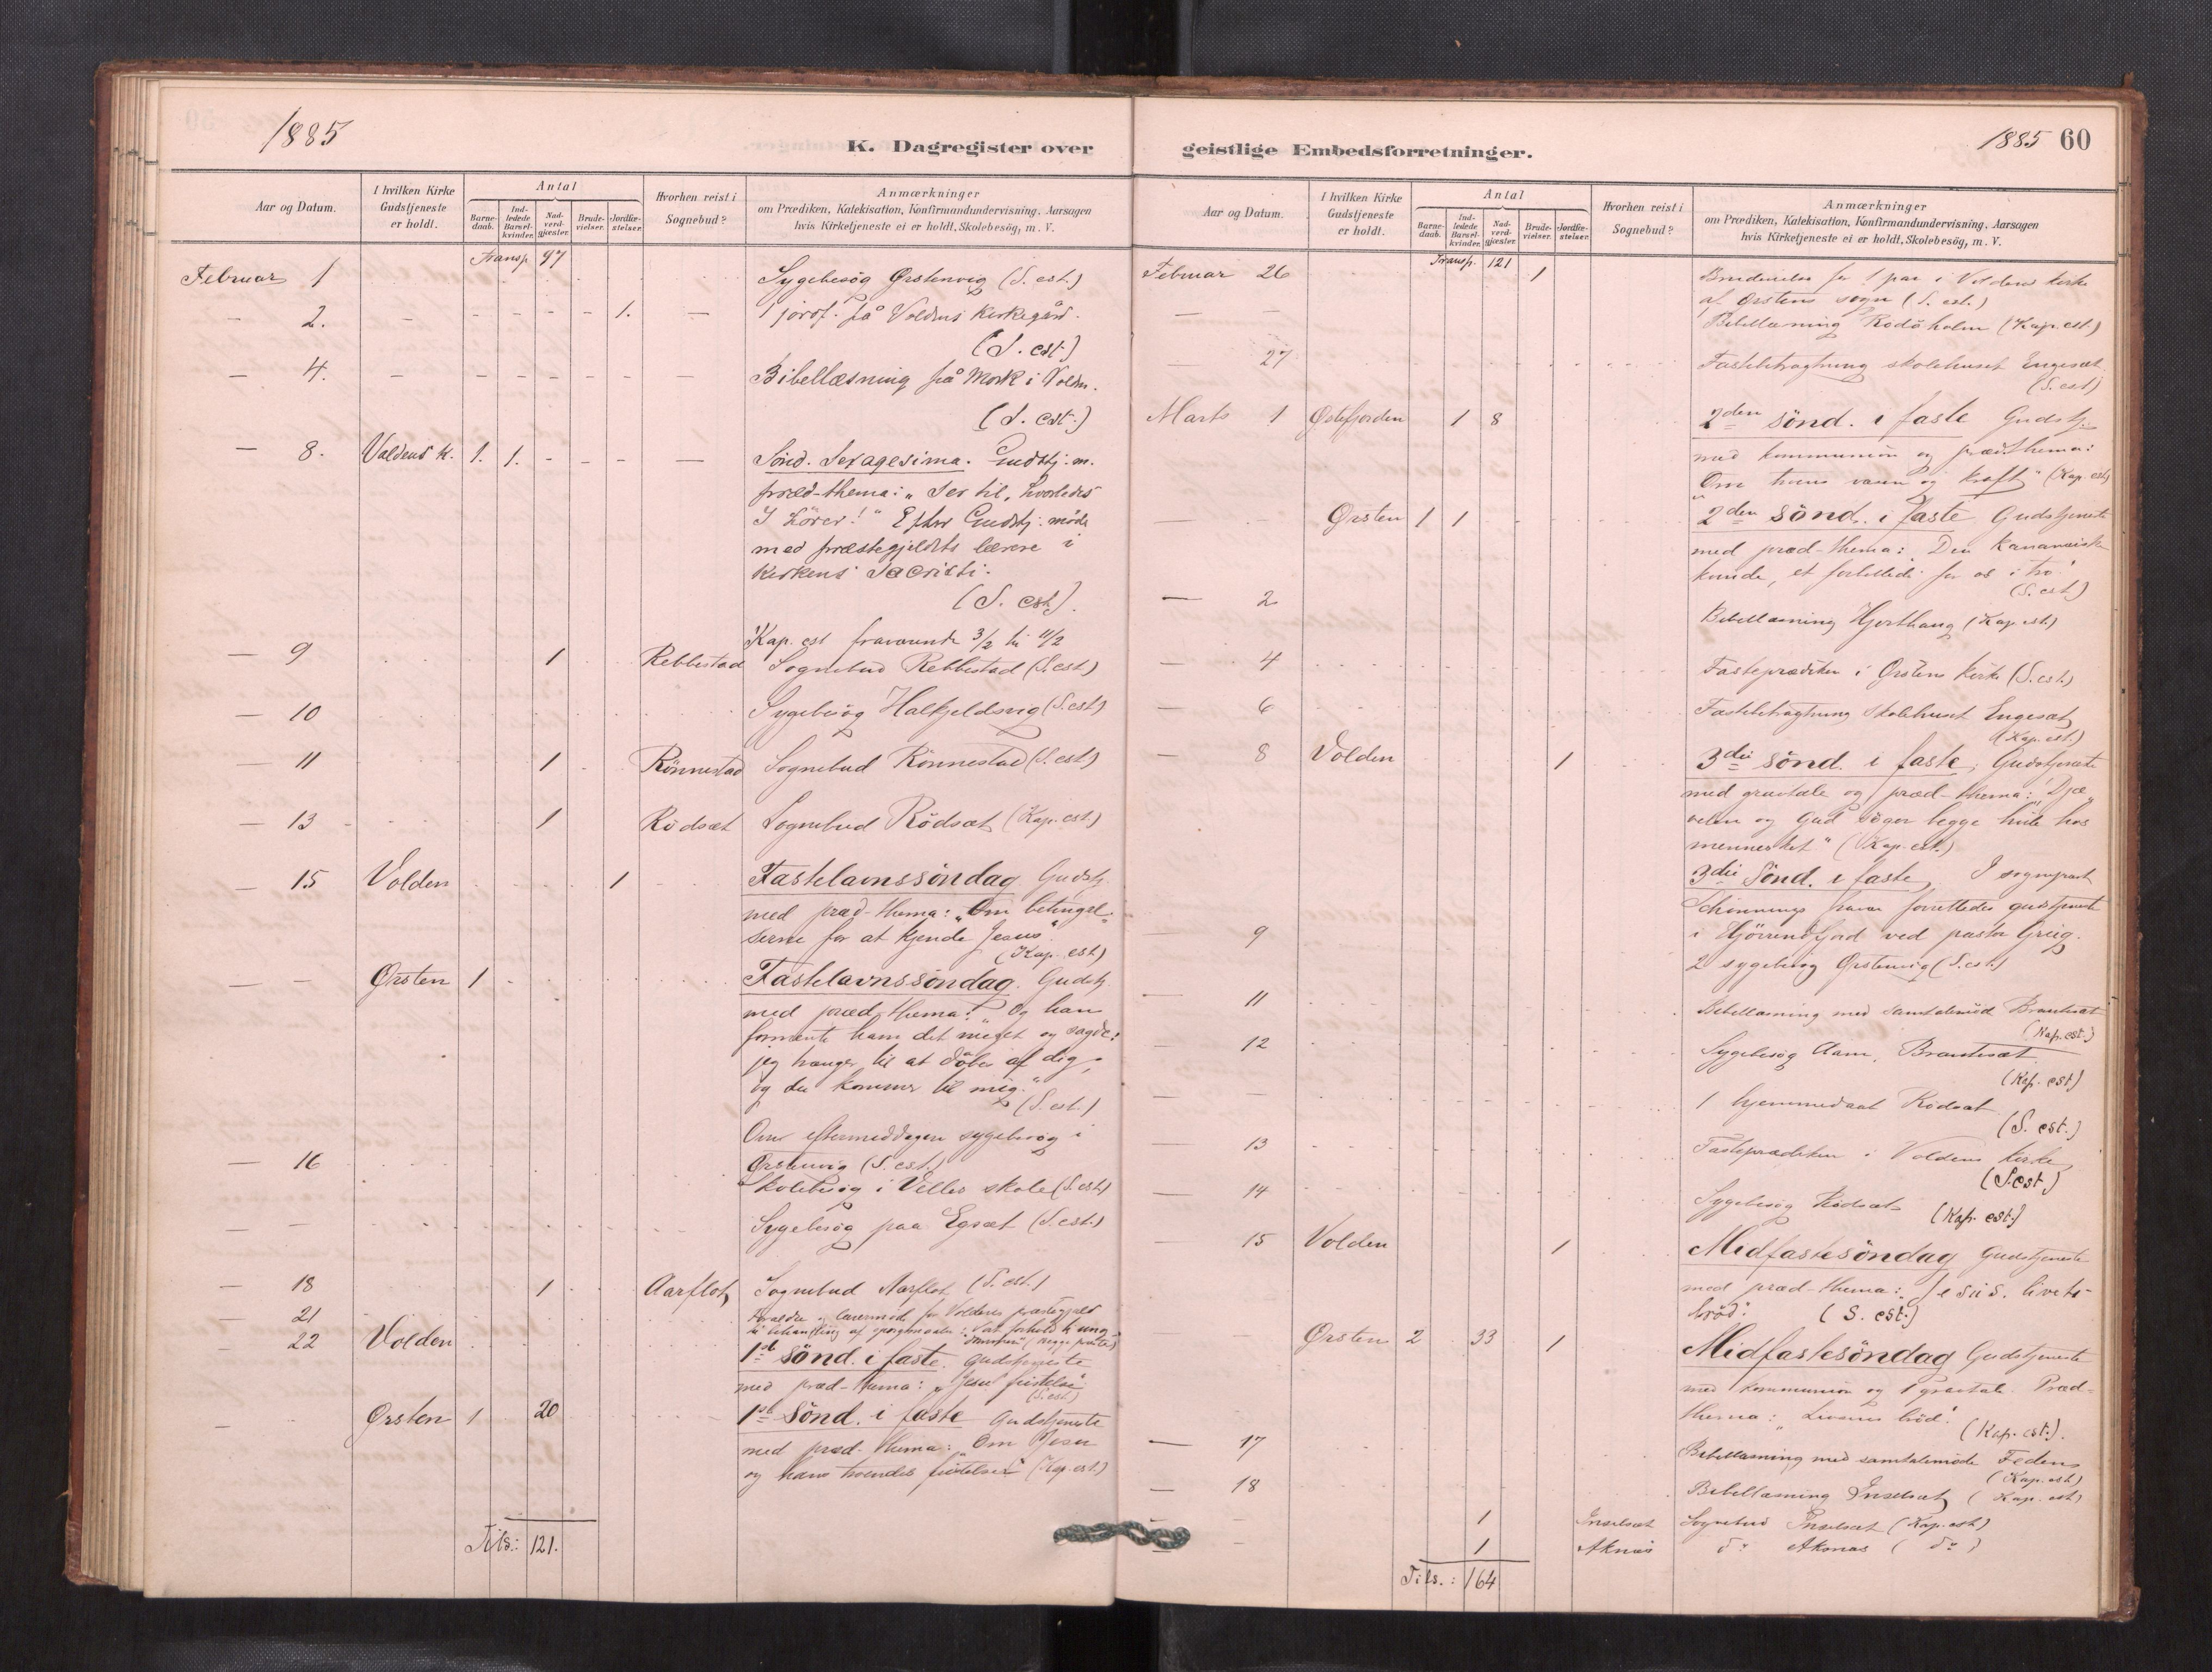 1885
K. Dagregister over
Aar og Datum.
I hvilken Kirke Gudstjeneste er holdt.
Antal
Barnedaab.
Indledede Barselkvinder.
Nadverdgjæster.
Brudevielser.
Jordfæstelser.
Hvorhen reist i Sognebud?
Anmærkninger
om Prædiken, Katekisation, Konfirmandundervisning, Aarsagen
hvis Kirketjeneste ei er holdt, Skolebesög, m. V.
Transp 97
Februar 1 Sygebesøg Ørstenvig (S. est.)
— 2. 1. — 1 jordf. på Voldens Kirkegård.
(S. est.)
— 4. Bibellæsning på Mork i Volden.
(S. est.)
— 8. Voldens k. 1. 1. — Sönd. Sexagesima. Gudstj. m.
præd-thema: „Ser til, hvorledes
I hører!" Efter Gudstj. møde
med præstegjeldets lærere i
Kirkens Sacristi.
(S. est.).
Kap. est fraværende 3/2 til 11/2
— 9 1 Rebbestad Sognebud Rebbestad (S. est)
— 10 Sygebesøg Halkjeldsvig (S. est)
— 11 1 Rönnestad Sognebud Rönnestad (S. est)
— 13 1 Rödsæt Sognebud Rödsæt (Kap. est.)
— 15 Volden 1 Fastelavnssöndag Gudstj.
med præd-thema: „Om betingel-
serne for at kjende Jesus"
(Kap. est)
— — Ørsten 1 Fastelavnssöndag. Gudstj.
med præd-thema: „Og han
formente ham det meget og sagde:
jeg trænger til at döbes af dig,
og du kommer til mig."
(S. est.)
Om eftermiddagen sygebesøg i
Ørstenvig (S. est.)
— 16 Skolebesøg i Velles skole (S. est)
— — Sygebesøg paa Egset (S. est.)
— 18 1 Aarflot Sognebud Aarflot (S. est.)
— 21 Forældre og lærermøde for Voldens præstegjeld
til behandling af spørgsmaalet: Vor forhold t. ung-
dommen (begge præster)
— 22 Volden 1ste Sönd. i faste. Gudstjeneste
med præd-thema: „Jesu fristelse"
(S. est)
— Ørsten 1 20 1ste Sönd. i faste Gudstjeneste
med præd-thema: „Om Jesu
og hans troendes fristelser" (Kap. est.)
Tils.: 121.
geistlige Embedsforretninger.
1885 60
Aar og Datum.
I hvilken Kirke Gudstjeneste er holdt.
Antal
Barnedaab.
Indledede Barselkvinder.
Nadverdgjæster.
Brudevielser.
Jordfæstelser.
Hvorhen reist i Sognebud?
Anmærkninger
om Prædiken, Katekisation, Konfirmandundervisning, Aarsagen
hvis Kirketjeneste ei er holdt, Skolebesög, m. V.
Transp. 121
Februar 26 1 Brudevielse for 1 par i Voldens kirke
af Ørstens sogn (S. est.)
— — Bibellæsning Rödöholm (Kap. est.)
— 27 Fastebetragtning skolehuset Engeset
(S. est)
Marts 1 Østefjorden 1 8 2den sönd. i faste Gudstj.
med kommunion og præd.thema:
„Om troens væsen og kraft" (Kap. est)
— — Ørsten 1 1 2den sönd. i faste Gudstjeneste
med præd-thema: „Den Kananæiske
kvinde, et forbillede for os i tro"
(S. est)
— 2 Bibellæsning Hjorthaug (Kap. est.)
— 4 Fasteprædiken i Ørstens kirke (S. est.)
— 6 Fastebetragtning skolehuset Engeset
(Kap. est.)
— 8 Volden 1 3die sönd. i faste; Gudstjeneste
med gravtale og præd-thema: „Djæ-
velen og Gud söger begge hvile hos
mennesket" (Kap. est.)
3die Sönd. i faste, I sognepræst
fravær forrettedes gudstjeneste
i Hjörendfjord ved pastor Greig.
— 9 2 sygebesøg Ørstenvig (S. est.)
— 11 Bibellæsning med samtalemöde Brautesæt
(Kap. est.)
— 12 Sygebesøg Aam, Brautesæt
(Kap. est)
1 hjemmedaab Rödsæt
(S. est.)
— 13 Fasteprædiken i Voldens kirke
(S. est.)
— 14 Sygebesøg Rödsæt (Kap. est.)
— 15 Volden 1 Midfastesöndag Gudstjeneste
med præd-thema: Jesus. livets-
bröd. (S. est.)
Ørsten 2 33 1 Midfastesöndag Gudstjeneste
med kommunion og 1 gravtale. Præd-
thema: „Livsens bröd".
(Kap. est.).
— 17 Bibellæsning med samtalemöde Fedens
(Kap. est)
— 18 Bibellæsning Inselsæt (Kap. est)
— — 1 Inselsæt Sognebud Inselsæt (Kap. est)
— — 1 Aknæs do Aknæs ( do )
Tils.: 164